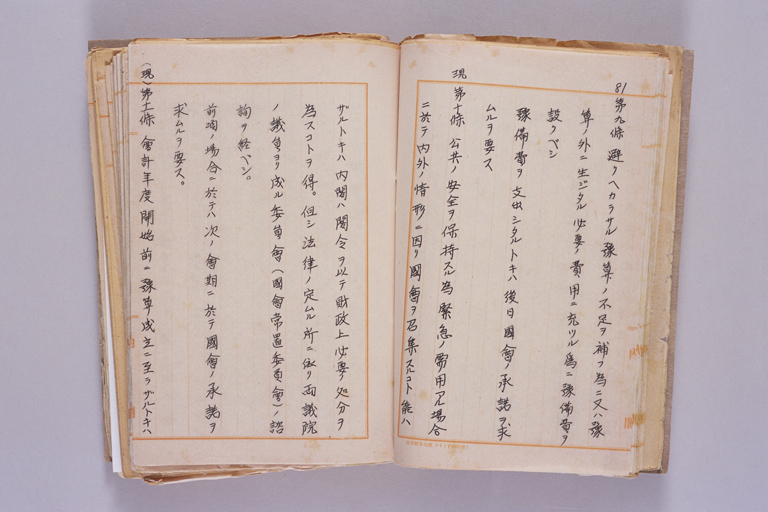 81
第九條 避クヘカラサル豫算ノ不足ヲ補フ為ニ又ハ豫
算ノ外ニ生ジタル必要ノ費用ニ充ツル為ニ豫備費ヲ
設クベシ
豫備費ヲ支出シタルトキハ後日國會ノ承諾ヲ求
ムルヲ要ス
現 第十條 公共ノ安全ヲ保持スル為緊急ノ需用アル場合
ニ於テ内外ノ情形ニ因リ國會ヲ召集スルコト能ハ
ザルトキハ内閣ハ閣令ヲ以テ財政上必要ノ処分ヲ
為スコトヲ得。但シ法律ノ定ムル所ニ依リ両議院
ノ議員ヨリ成ル委員會(國會常置委員會)ノ諮
詢ヲ経ベシ。
前項ノ場合ニ於テハ次ノ會期ニ於テ國會ノ承諾ヲ
求ムルヲ要ス。
(現)第十一條 會計年度開始前ニ豫算成立ニ至ラザルトキハ